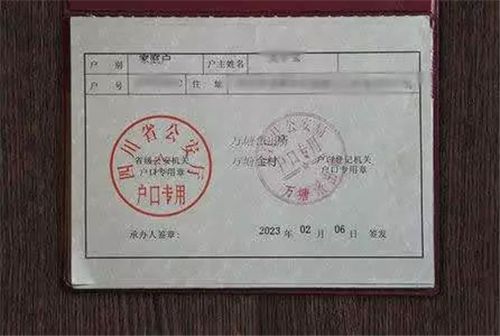 户 别 家庭户 户主姓名
户 号 住 址
四川省公安厅
户口专用
省级公安机关
户口专用章
万塘
万塘
公安局
户口专用
万塘
户口登记机关
户口专用章
承办人签章：
2023 年 02 月 06 日 签发